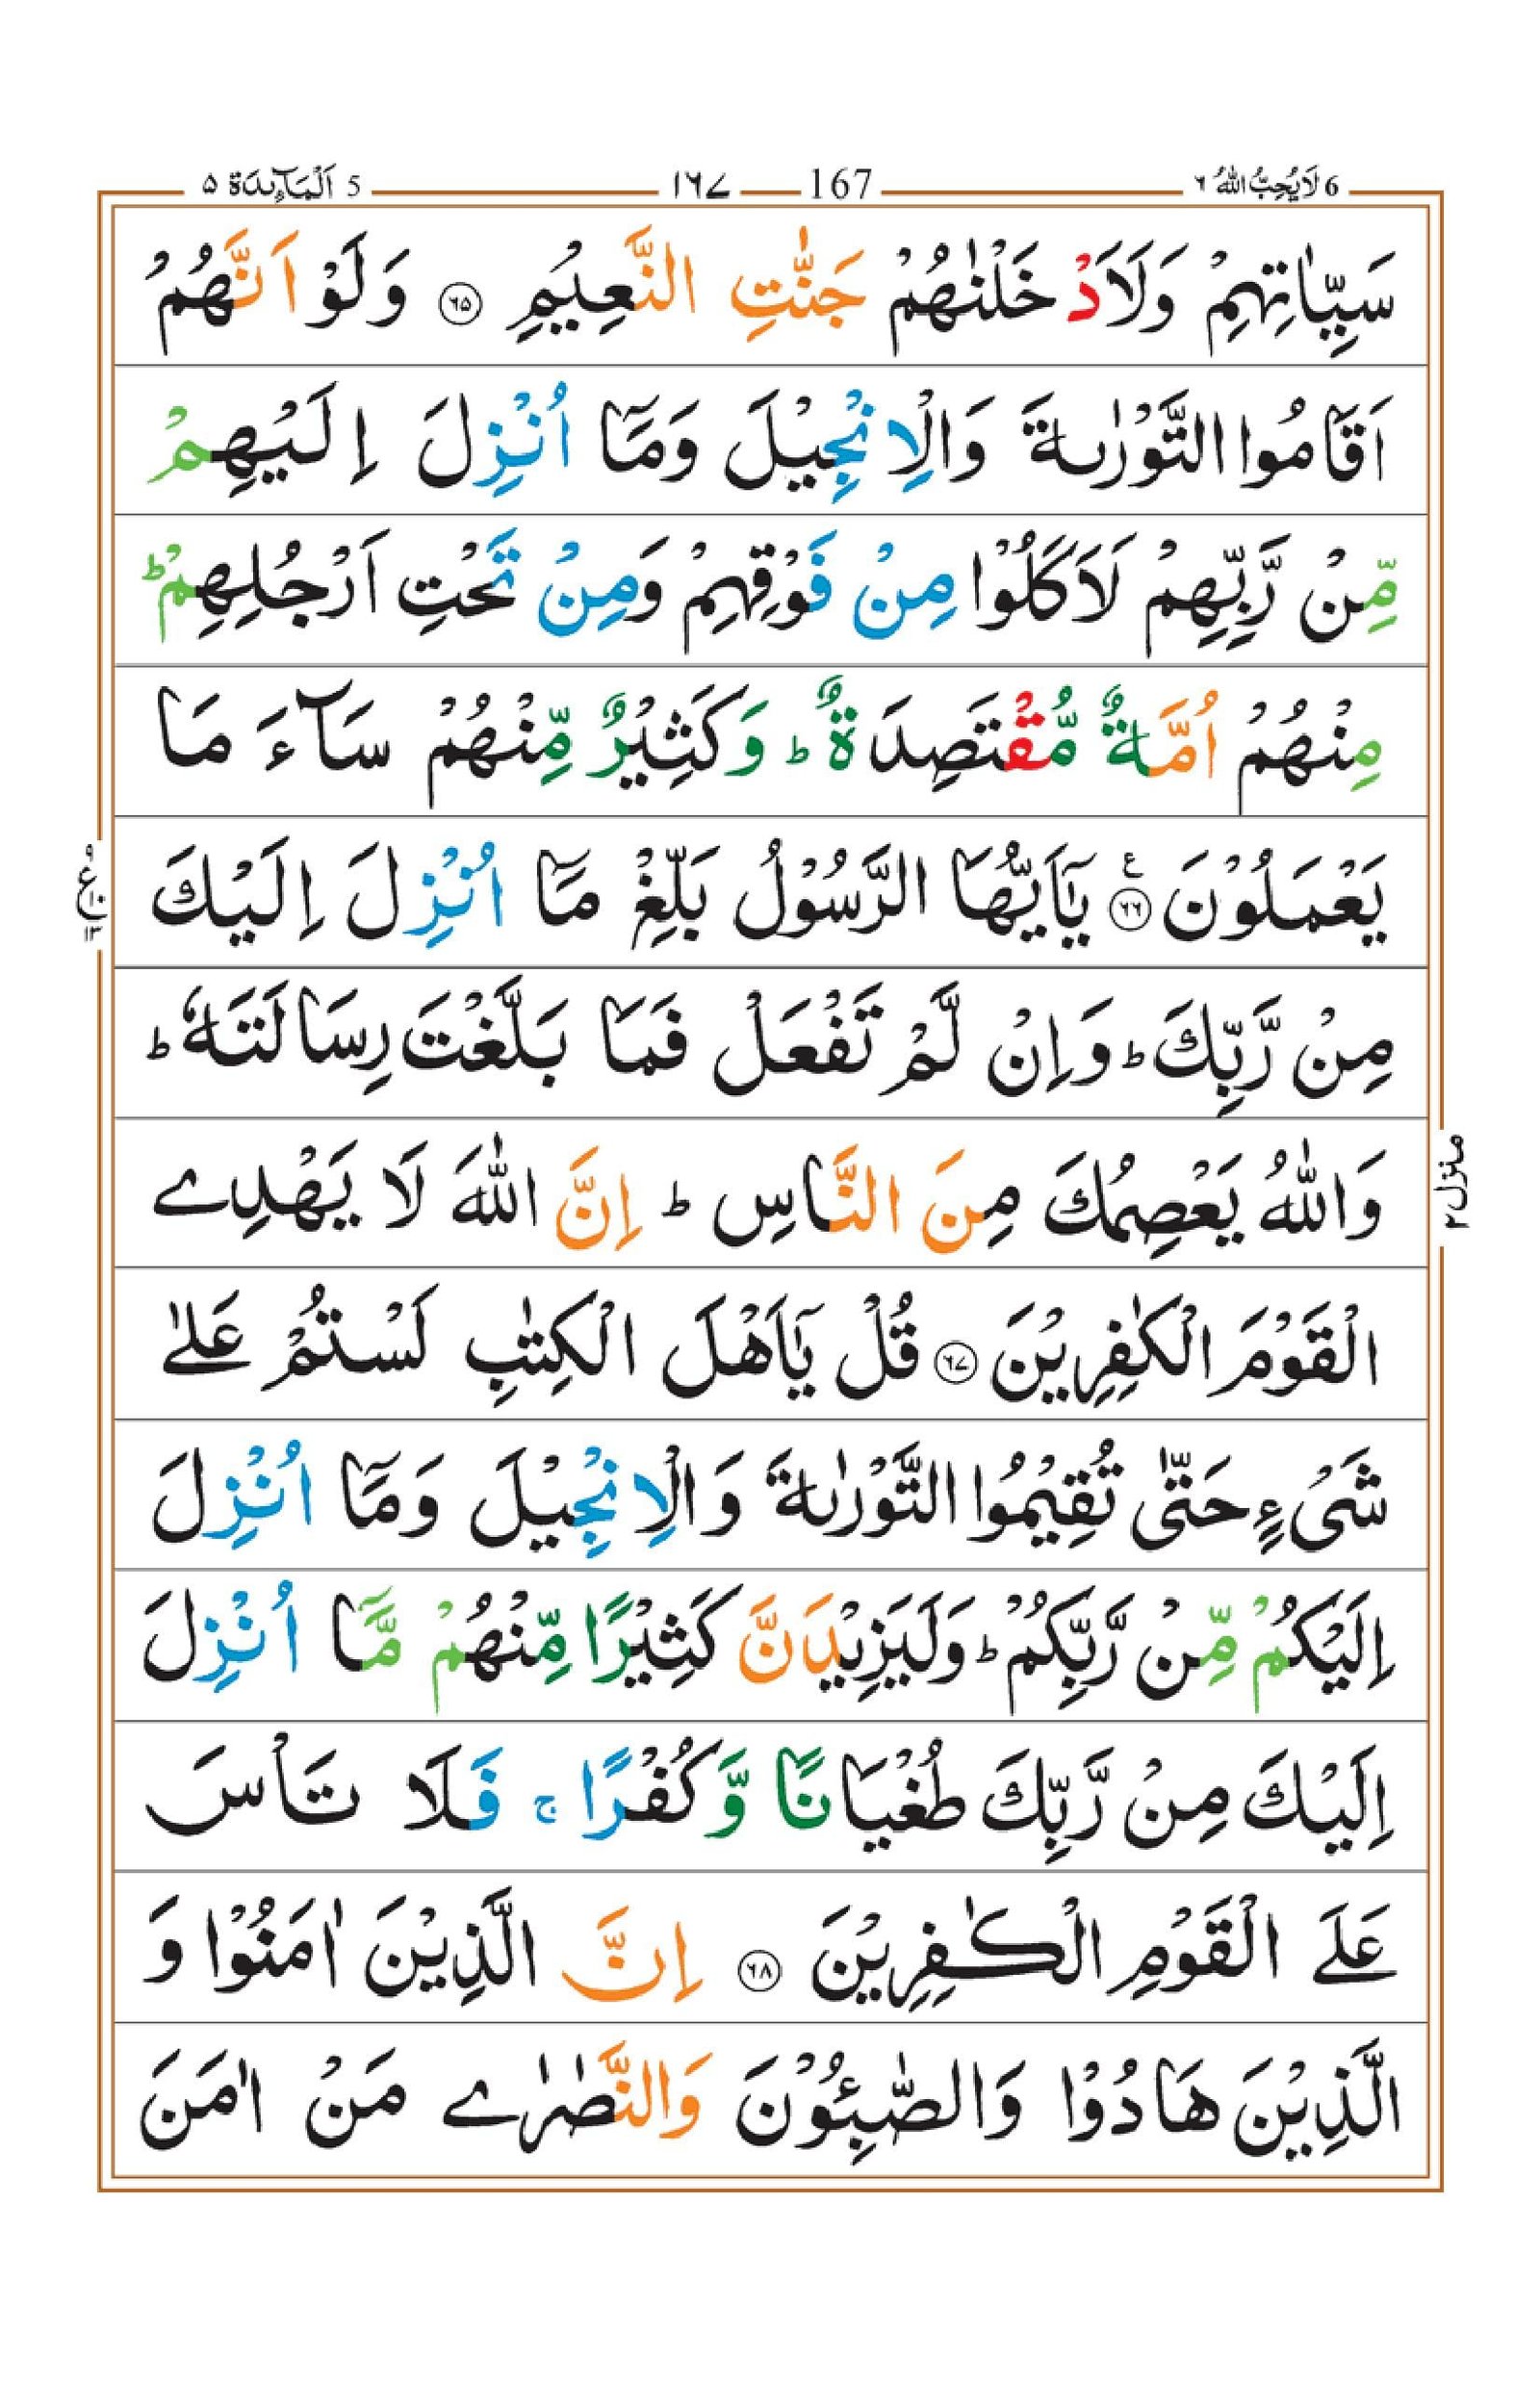 6 لَا يُحِبُّ اللّٰهُ ٦
167 ١٦٧
5 اَلْمَآئِدَة ٥
سَيِّاٰتِهِمْ وَلَاَدْخَلْنٰهُمْ جَنّٰتِ النَّعِيْمِ ﴿٦٥﴾ وَلَوْ اَنَّهُمْ
اَقَامُوا التَّوْرٰىةَ وَالْاِنْجِيْلَ وَمَاۤ اُنْزِلَ اِلَيْهِمْ
مِّنْ رَّبِّهِمْ لَاَكَلُوْا مِنْ فَوْقِهِمْ وَمِنْ تَحْتِ اَرْجُلِهِمْ ؕ
مِنْهُمْ اُمَّةٌ مُّقْتَصِدَةٌ ؕ وَكَثِيْرٌ مِّنْهُمْ سَآءَ مَا
يَعْمَلُوْنَ ﴿٦٦﴾ ع يٰۤاَيُّهَا الرَّسُوْلُ بَلِّغْ مَاۤ اُنْزِلَ اِلَيْكَ
٩ ع ١٠ ١٣
مِنْ رَّبِّكَ ؕ وَاِنْ لَّمْ تَفْعَلْ فَمَا بَلَّغْتَ رِسَالَتَهٗ ؕ
وَاللّٰهُ يَعْصِمُكَ مِنَ النَّاسِ ؕ اِنَّ اللّٰهَ لَا يَهْدِے
منزل ٢
الْقَوْمَ الْكٰفِرِيْنَ ﴿٦٧﴾ قُلْ يٰۤاَهْلَ الْكِتٰبِ لَسْتُمْ عَلٰے
شَیْءٍ حَتّٰى تُقِيْمُوا التَّوْرٰىةَ وَالْاِنْجِيْلَ وَمَاۤ اُنْزِلَ
اِلَيْكُمْ مِّنْ رَّبِّكُمْ ؕ وَلَيَزِيْدَنَّ كَثِيْرًا مِّنْهُمْ مَّاۤ اُنْزِلَ
اِلَيْكَ مِنْ رَّبِّكَ طُغْيَانًا وَّكُفْرًا ۚ فَلَا تَاْسَ
عَلَے الْقَوْمِ الْكٰفِرِيْنَ ﴿٦٨﴾ اِنَّ الَّذِيْنَ اٰمَنُوْا وَ
الَّذِيْنَ هَادُوْا وَالصّٰبِئُوْنَ وَالنَّصٰرٰے مَنْ اٰمَنَ